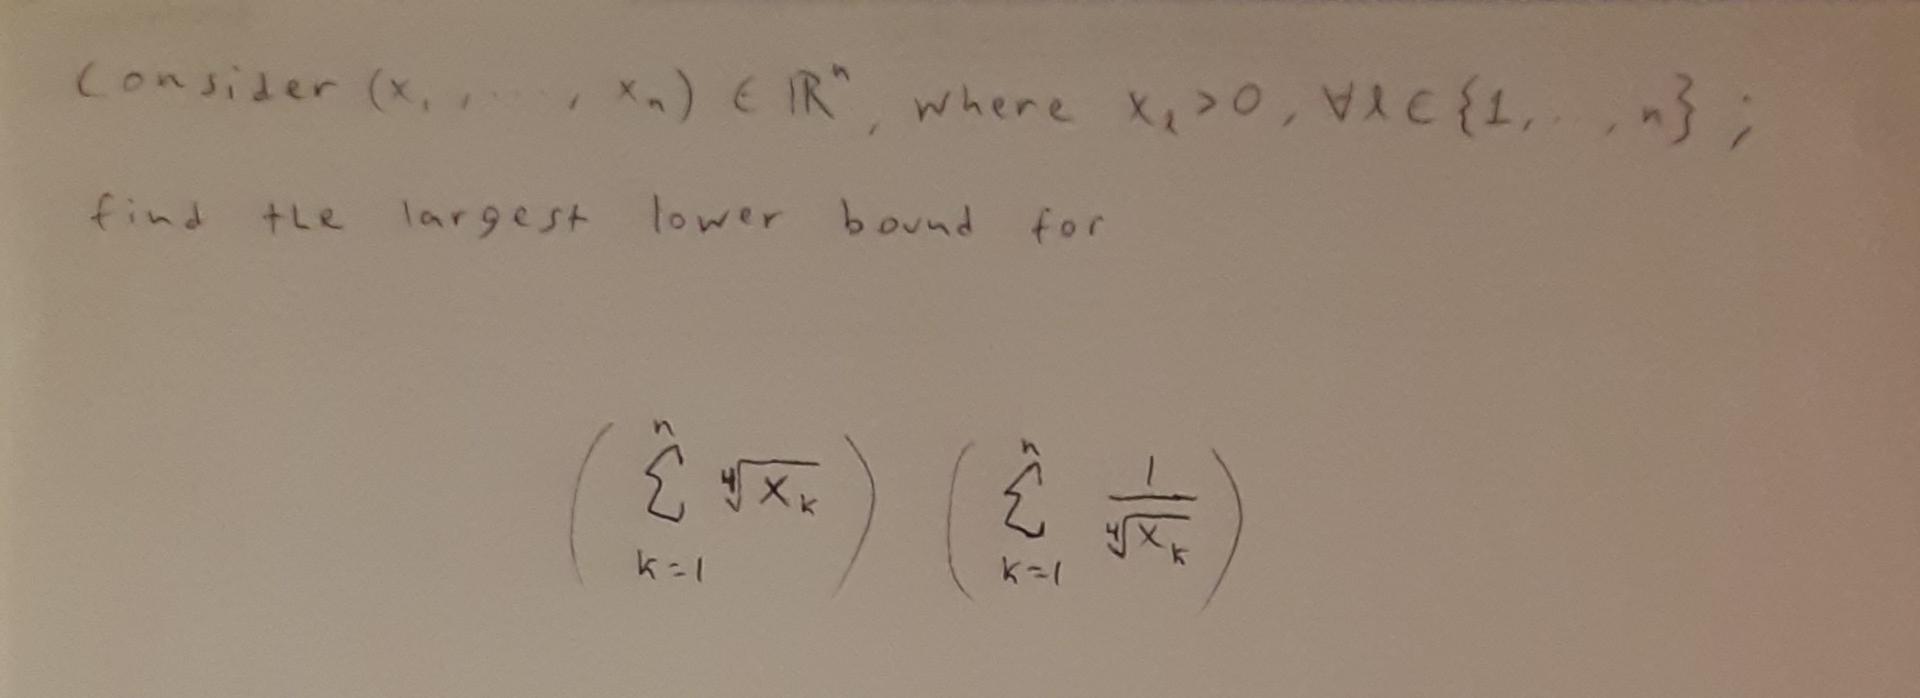 Consider (x₁, ..., xₙ) ∈ ℝⁿ, where xₗ > 0, ∀ l ∈ {1, ..., n} ;
find the largest lower bound for
( ∑_{k=1}^{n} ∜x_k ) ( ∑_{k=1}^{n} 1/∜x_k )